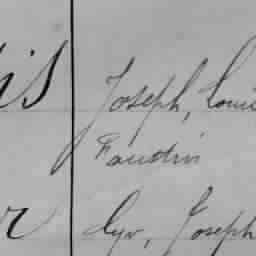 is Joseph, Louis
Faudrin
Cyr, Joseph